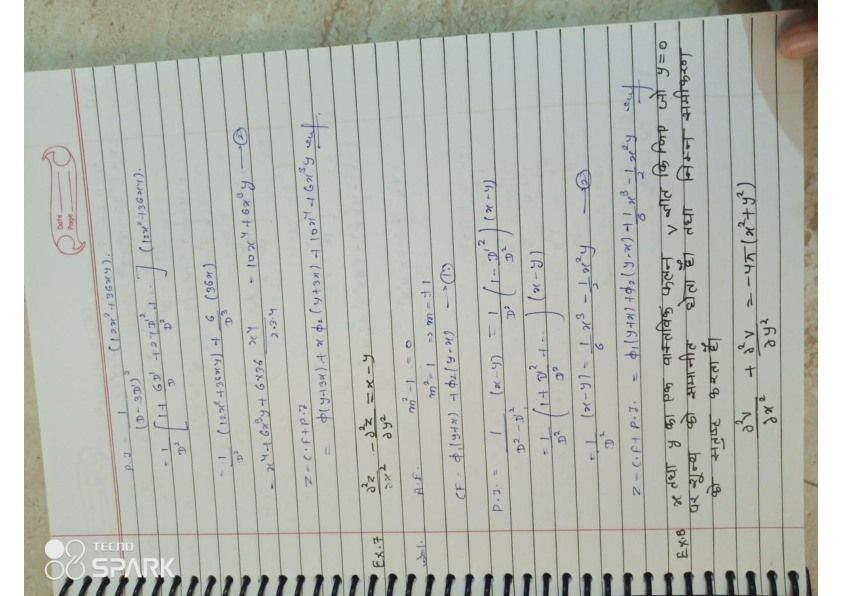 Date
Page
P.I = 1/(D-3D')² (12x²+36xy).
= 1/D² [1+ 6D'/D + 27D'²/D² + ...] (12x²+36xy).
= 1/D² (12x²+36xy) + 6/D³ (36x)
= x⁴+6x³y+6x36 x⁴/2.3.4 = 10x⁴+6x³y —②
Z = C.F+P.I
= ϕ(y+3x)+xϕ₂(y+3x)+10x⁴+6x³y
Ex.7 ∂²z/∂x² - ∂²z/∂y² = x-y
A.E. m²-1=0
m²=1 => m=±1
CF = ϕ₁(y+x)+ϕ₂(y-x) —①
P.I. = 1/D²-D'² (x-y) = 1/D² (1-D'²/D²) (x-y)
= 1/D² (1+D'²/D²+...) (x-y)
= 1/D² (x-y) = 1/6 x³ - 1/2 x²y —②
Z=C.F+P.I. = ϕ₁(y+x)+ϕ₂(y-x)+1/6 x³-1/2 x²y
Ex.8 x तथा y का एक वास्तविक फलन V ज्ञात किजिए जो y=0
पर शून्य को समानीत होता है। तथा निम्न समीकरण
को सतुष्ट करता है।
∂²V/∂x² + ∂²V/∂y² = -4π(x²+y²)
TECNO
SPARK